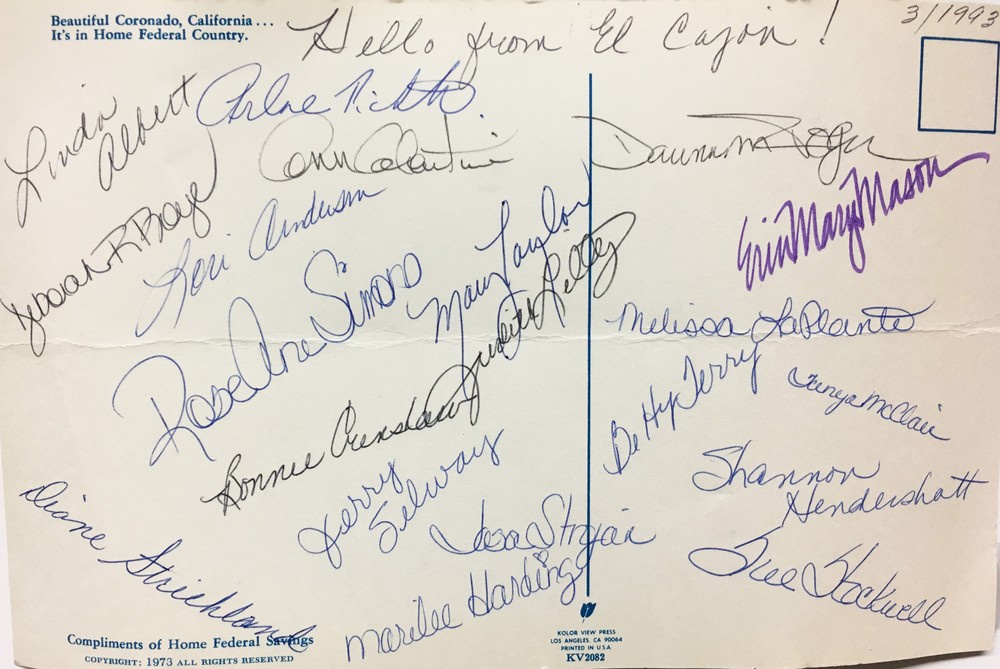 Beautiful Coronado, California . . .
It's in Home Federal Country.
3/1993
Hello from El Cajon !
Linda
Albert
Arlene
Ann
Dawna
Deborah R
Lori Anderson
Mary Taylor
Erin Mary Mason
Rose Ane Simons
Judith Kelley
Melissa LaPlante
Bonnie Crenshaw
Betty Terry
Tanya McClair
Jerry
Selway
Shannon
Hendershott
Diane Strickland
Marilee Harding
Sue Stockwell
Compliments of Home Federal Savings
COPYRIGHT: 1973 ALL RIGHTS RESERVED
KOLOR VIEW PRESS
LOS ANGELES, CA 90064
PRINTED IN U.S.A.
KV2082